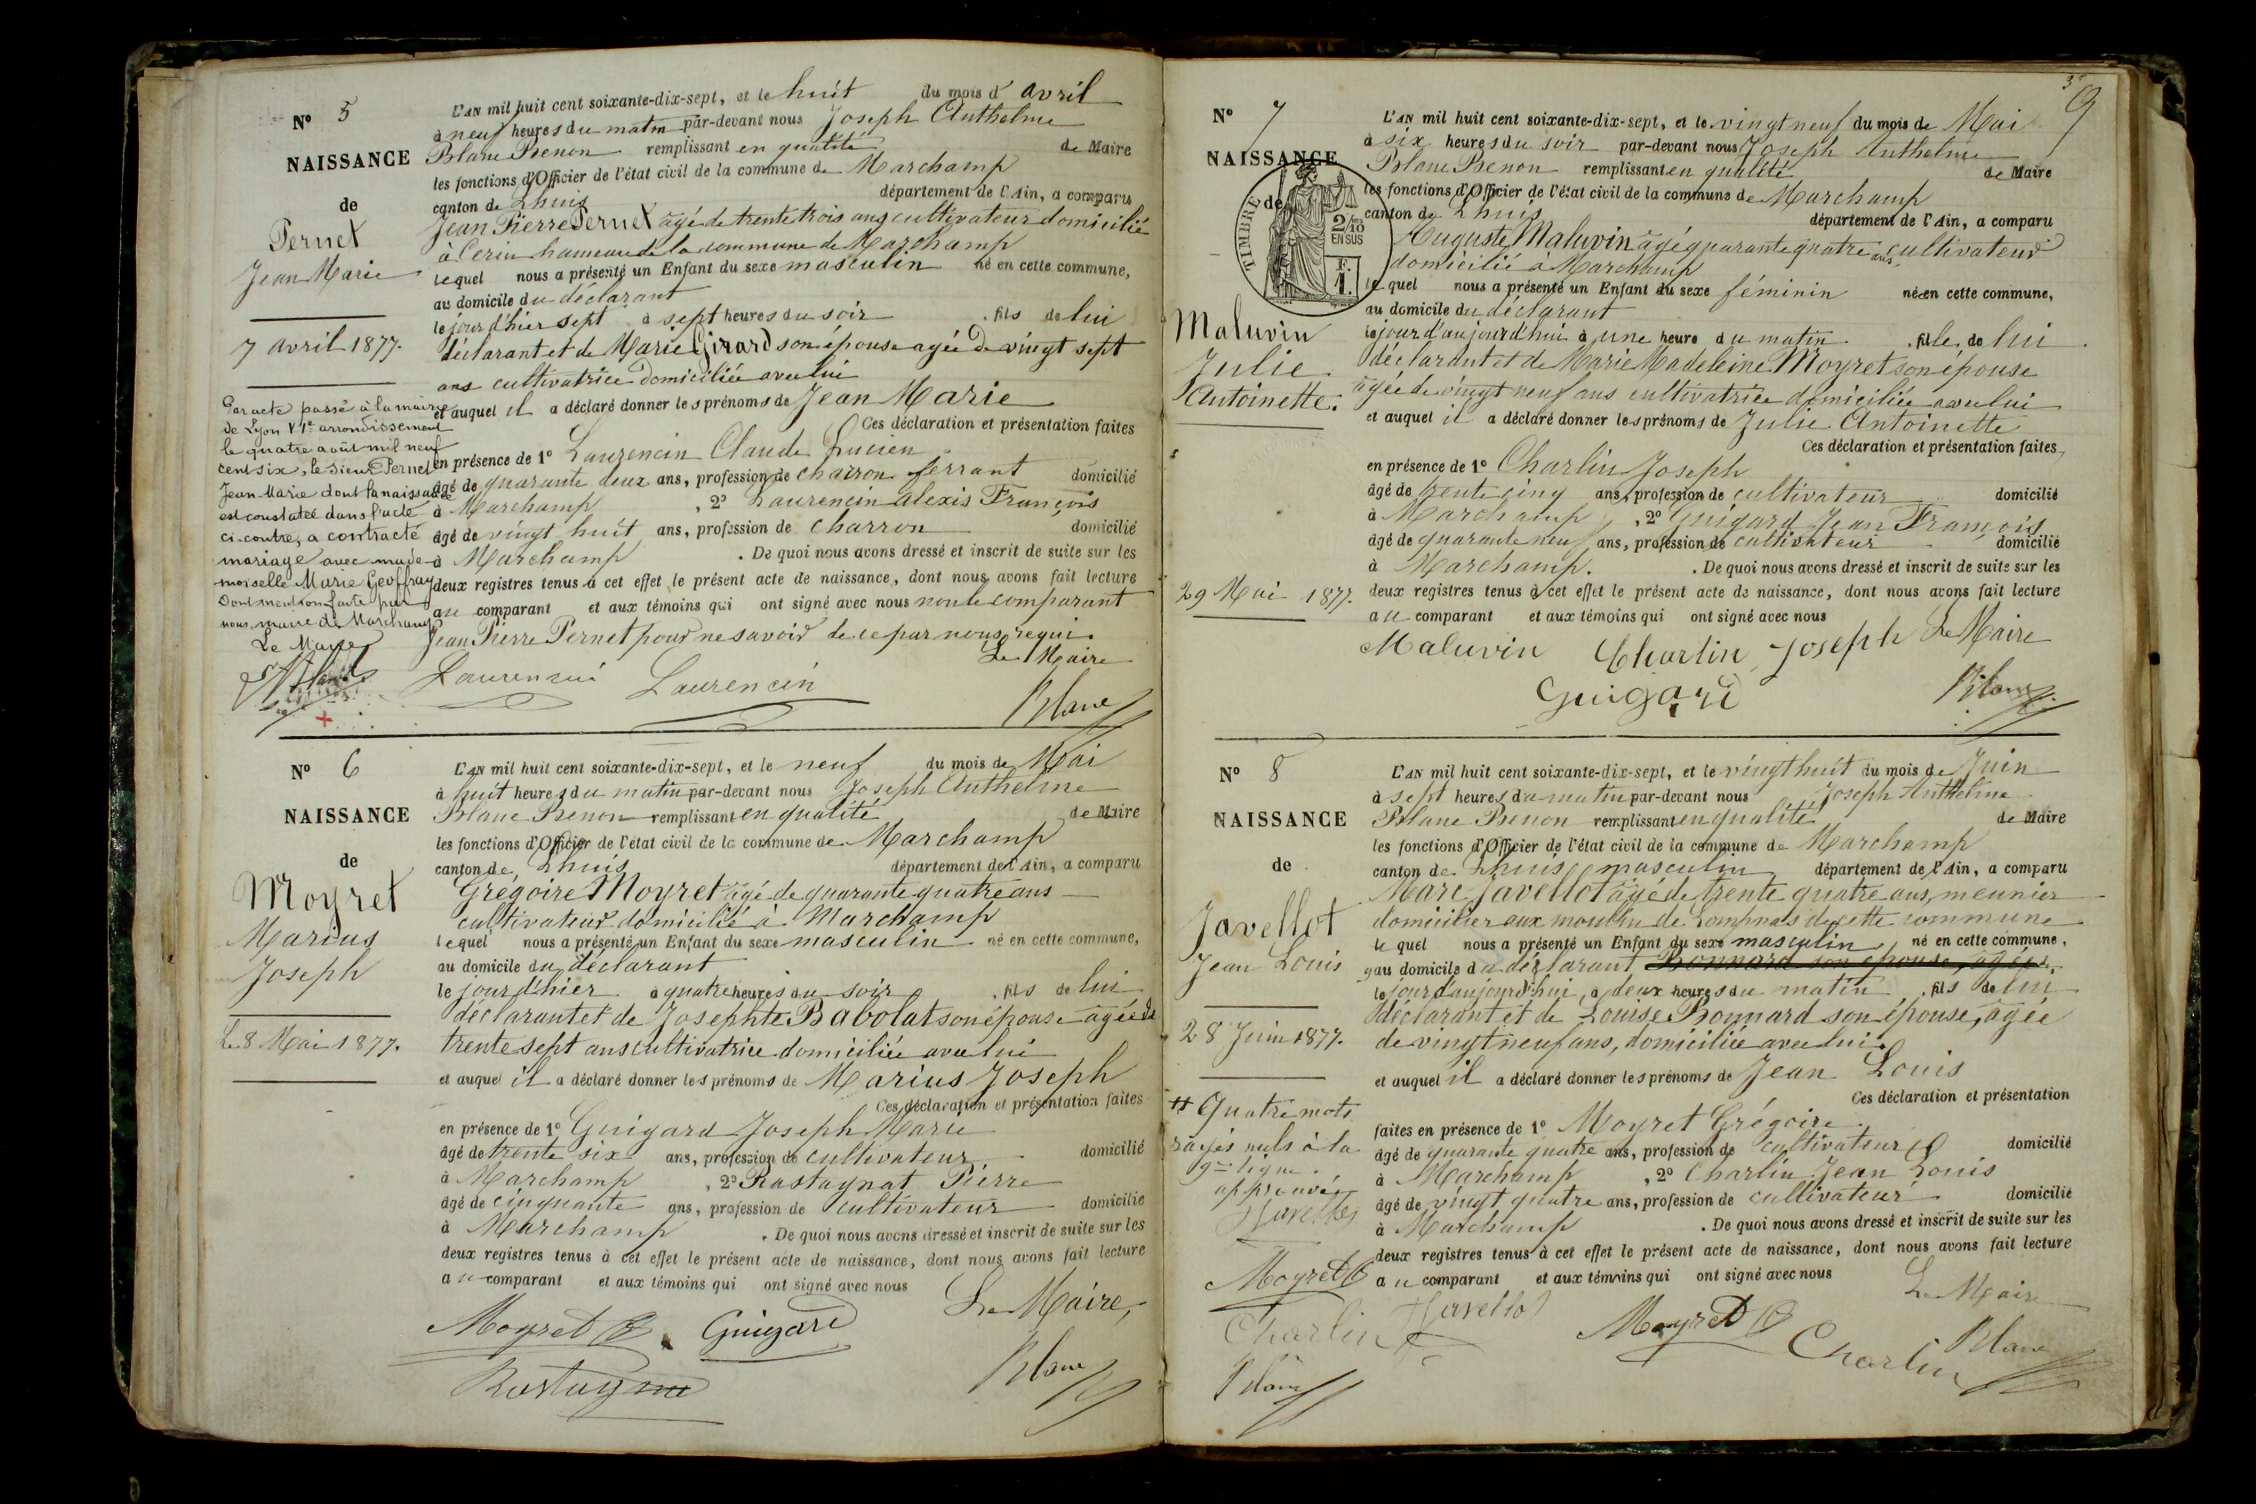 N° 5
NAISSANCE
de
Pernet
Jean Marie
7 avril 1877.
Par acte passé à la mairie
de Lyon VIe arrondissement
le quatre août mil neuf
cent six, le sieur Pernet
Jean-Marie dont la naissance
est constatée dans l'acte
ci-contre, a contracté
mariage avec made-
moiselle Marie Geoffray
Dont mention faite par
nous, maire de Marchamp
Le Maire
L'AN mil huit cent soixante-dix-sept, et le huit du mois d'avril
à neuf heures du matin par-devant nous Joseph Anthelme
Blanc Benon remplissant en qualité de Maire
les fonctions d'Officier de l'état civil de la commune de Marchamp
canton de Lhuis département de l'Ain, a comparu
Jean Pierre Pernet âgé de trente trois ans cultivateur domicilié
à Cerin hameau de la commune de Marchamp
lequel nous a présenté un Enfant du sexe masculin né en cette commune,
au domicile du déclarant
le jour d'hier sept à sept heures du soir . fils de lui
déclarant et de Marie Girard son épouse agée de vingt sept
ans cultivatrice domiciliée avec lui
et auquel il a déclaré donner les prénoms de Jean Marie
Ces déclaration et présentation faites
en présence de 1° Laurencin Claude Lucien
âgé de quarante deux ans, profession de charron ferrant domicilié
à Marchamp , 2° Laurencin Alexis François
âgé de vingt huit ans, profession de charron domicilié
à Marchamp . De quoi nous avons dressé et inscrit de suite sur les
deux registres tenus à cet effet le présent acte de naissance, dont nous avons fait lecture
au comparant et aux témoins qui ont signé avec nous non le comparant
Jean Pierre Pernet pour ne savoir de ce par nous requi.
Le Maire
Laurencin Laurencin Blanc
N° 6
NAISSANCE
de
Moyret
Marius
Joseph
Le 8 Mai 1877.
L'AN mil huit cent soixante-dix-sept, et le neuf du mois de Mai
à huit heures du matin par-devant nous Joseph Anthelme
Blanc Benon remplissant en qualité de Maire
les fonctions d'Officier de l'état civil de la commune de Marchamp
canton de Lhuis département de l'Ain, a comparu
Grégoire Moyret âgé de quarante quatre ans
cultivateur domicilié à Marchamp
lequel nous a présenté un Enfant du sexe masculin né en cette commune,
au domicile du déclarant
le jour d'hier à quatre heures du soir . fils de lui
déclarant et de Josephte Babolat son épouse agée de
trente sept ans cultivatrice domiciliée avec lui
et auquel il a déclaré donner les prénoms de Marius Joseph
Ces déclaration et présentation faites
en présence de 1° Guigard Joseph Marie
âgé de trente six ans, profession de cultivateur domicilié
à Marchamp , 2° Rastagnat Pierre
âgé de cinquante ans, profession de cultivateur domicilié
à Marchamp . De quoi nous avons dressé et inscrit de suite sur les
deux registres tenus à cet effet le présent acte de naissance, dont nous avons fait lecture
au comparant et aux témoins qui ont signé avec nous
Le Maire,
Moyret G Guigard
Blanc
N° 7
NAISSANCE
de
TIMBRE
2/10
EN SUS
F.
1.
Maluvin
Julie
Antoinette.
29 Mai 1877.
9
L'AN mil huit cent soixante-dix-sept, et le vingt neuf du mois de Mai
à six heures du soir par-devant nous Joseph Anthelme
Blanc Benon remplissant en qualité de Maire
les fonctions d'Officier de l'état civil de la commune de Marchamp
canton de Lhuis département de l'Ain, a comparu
Auguste Maluvin âgé quarante quatre ans cultivateur
domicilié à Marchamp
lequel nous a présenté un Enfant du sexe féminin née en cette commune,
au domicile du déclarant
le jour d'aujourd'hui à une heure du matin . fille de lui
déclarant et de Marie Madeleine Moyret son épouse
agée de vingt neuf ans cultivatrice domiciliée avec lui
et auquel il a déclaré donner les prénoms de Julie Antoinette
Ces déclaration et présentation faites,
en présence de 1° Charlin Joseph
âgé de trente cinq ans, profession de cultivateur domicilié
à Marchamp , 2° Guigard Jean François
âgé de quarante neuf ans, profession de cultivateur domicilié
à Marchamp. . De quoi nous avons dressé et inscrit de suite sur les
deux registres tenus à cet effet le présent acte de naissance, dont nous avons fait lecture
au comparant et aux témoins qui ont signé avec nous
Maluvin Charlin Joseph Le Maire
Guigard Blanc
N° 8
NAISSANCE
de
Javellot
Jean Louis
28 Juin 1877.
Quatre mots
rayés nuls à la
9me ligne.
approuvés
Javellot
Moyret G
Charlin
Blanc
L'AN mil huit cent soixante-dix-sept, et le vingt huit du mois de Juin
à sept heures du matin par-devant nous Joseph Anthelme
Blanc Benon remplissant en qualité de Maire
les fonctions d'Officier de l'état civil de la commune de Marchamp
canton de Lhuis masculin département de l'Ain, a comparu
Marc Javellot âgé de trente quatre ans, meunier
domicilier aux moulin de Lompnas de cette commune
lequel nous a présenté un Enfant du sexe masculin, né en cette commune,
au domicile du déclarant Bonnard son épouse, agée,
le jour d'aujourd'hui, à deux heures du matin . fils de lui
déclarant et de Louise Bonnard son épouse, agée
de vingt neuf ans, domiciliée avec lui.
et auquel il a déclaré donner les prénoms de Jean Louis
Ces déclaration et présentation
faites en présence de 1° Moyret Grégoire
âgé de quarante quatre ans, profession de cultivateur domicilié
à Marchamp , 2° Charlin Jean Louis
âgé de vingt quatre ans, profession de cultivateur domicilié
à Marchamp . De quoi nous avons dressé et inscrit de suite sur les
deux registres tenus à cet effet le présent acte de naissance, dont nous avons fait lecture
au comparant et aux témoins qui ont signé avec nous
Le Maire
Javellot Moyret G Charlin Blanc